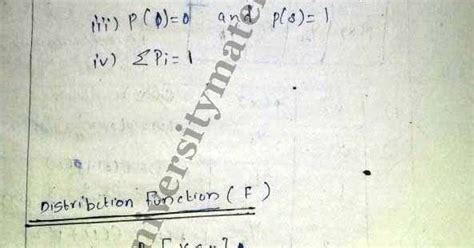 iii) P(ϕ)=0 and p(s)=1
iv) ΣPi=1
universitymater
Distribution Function (F)